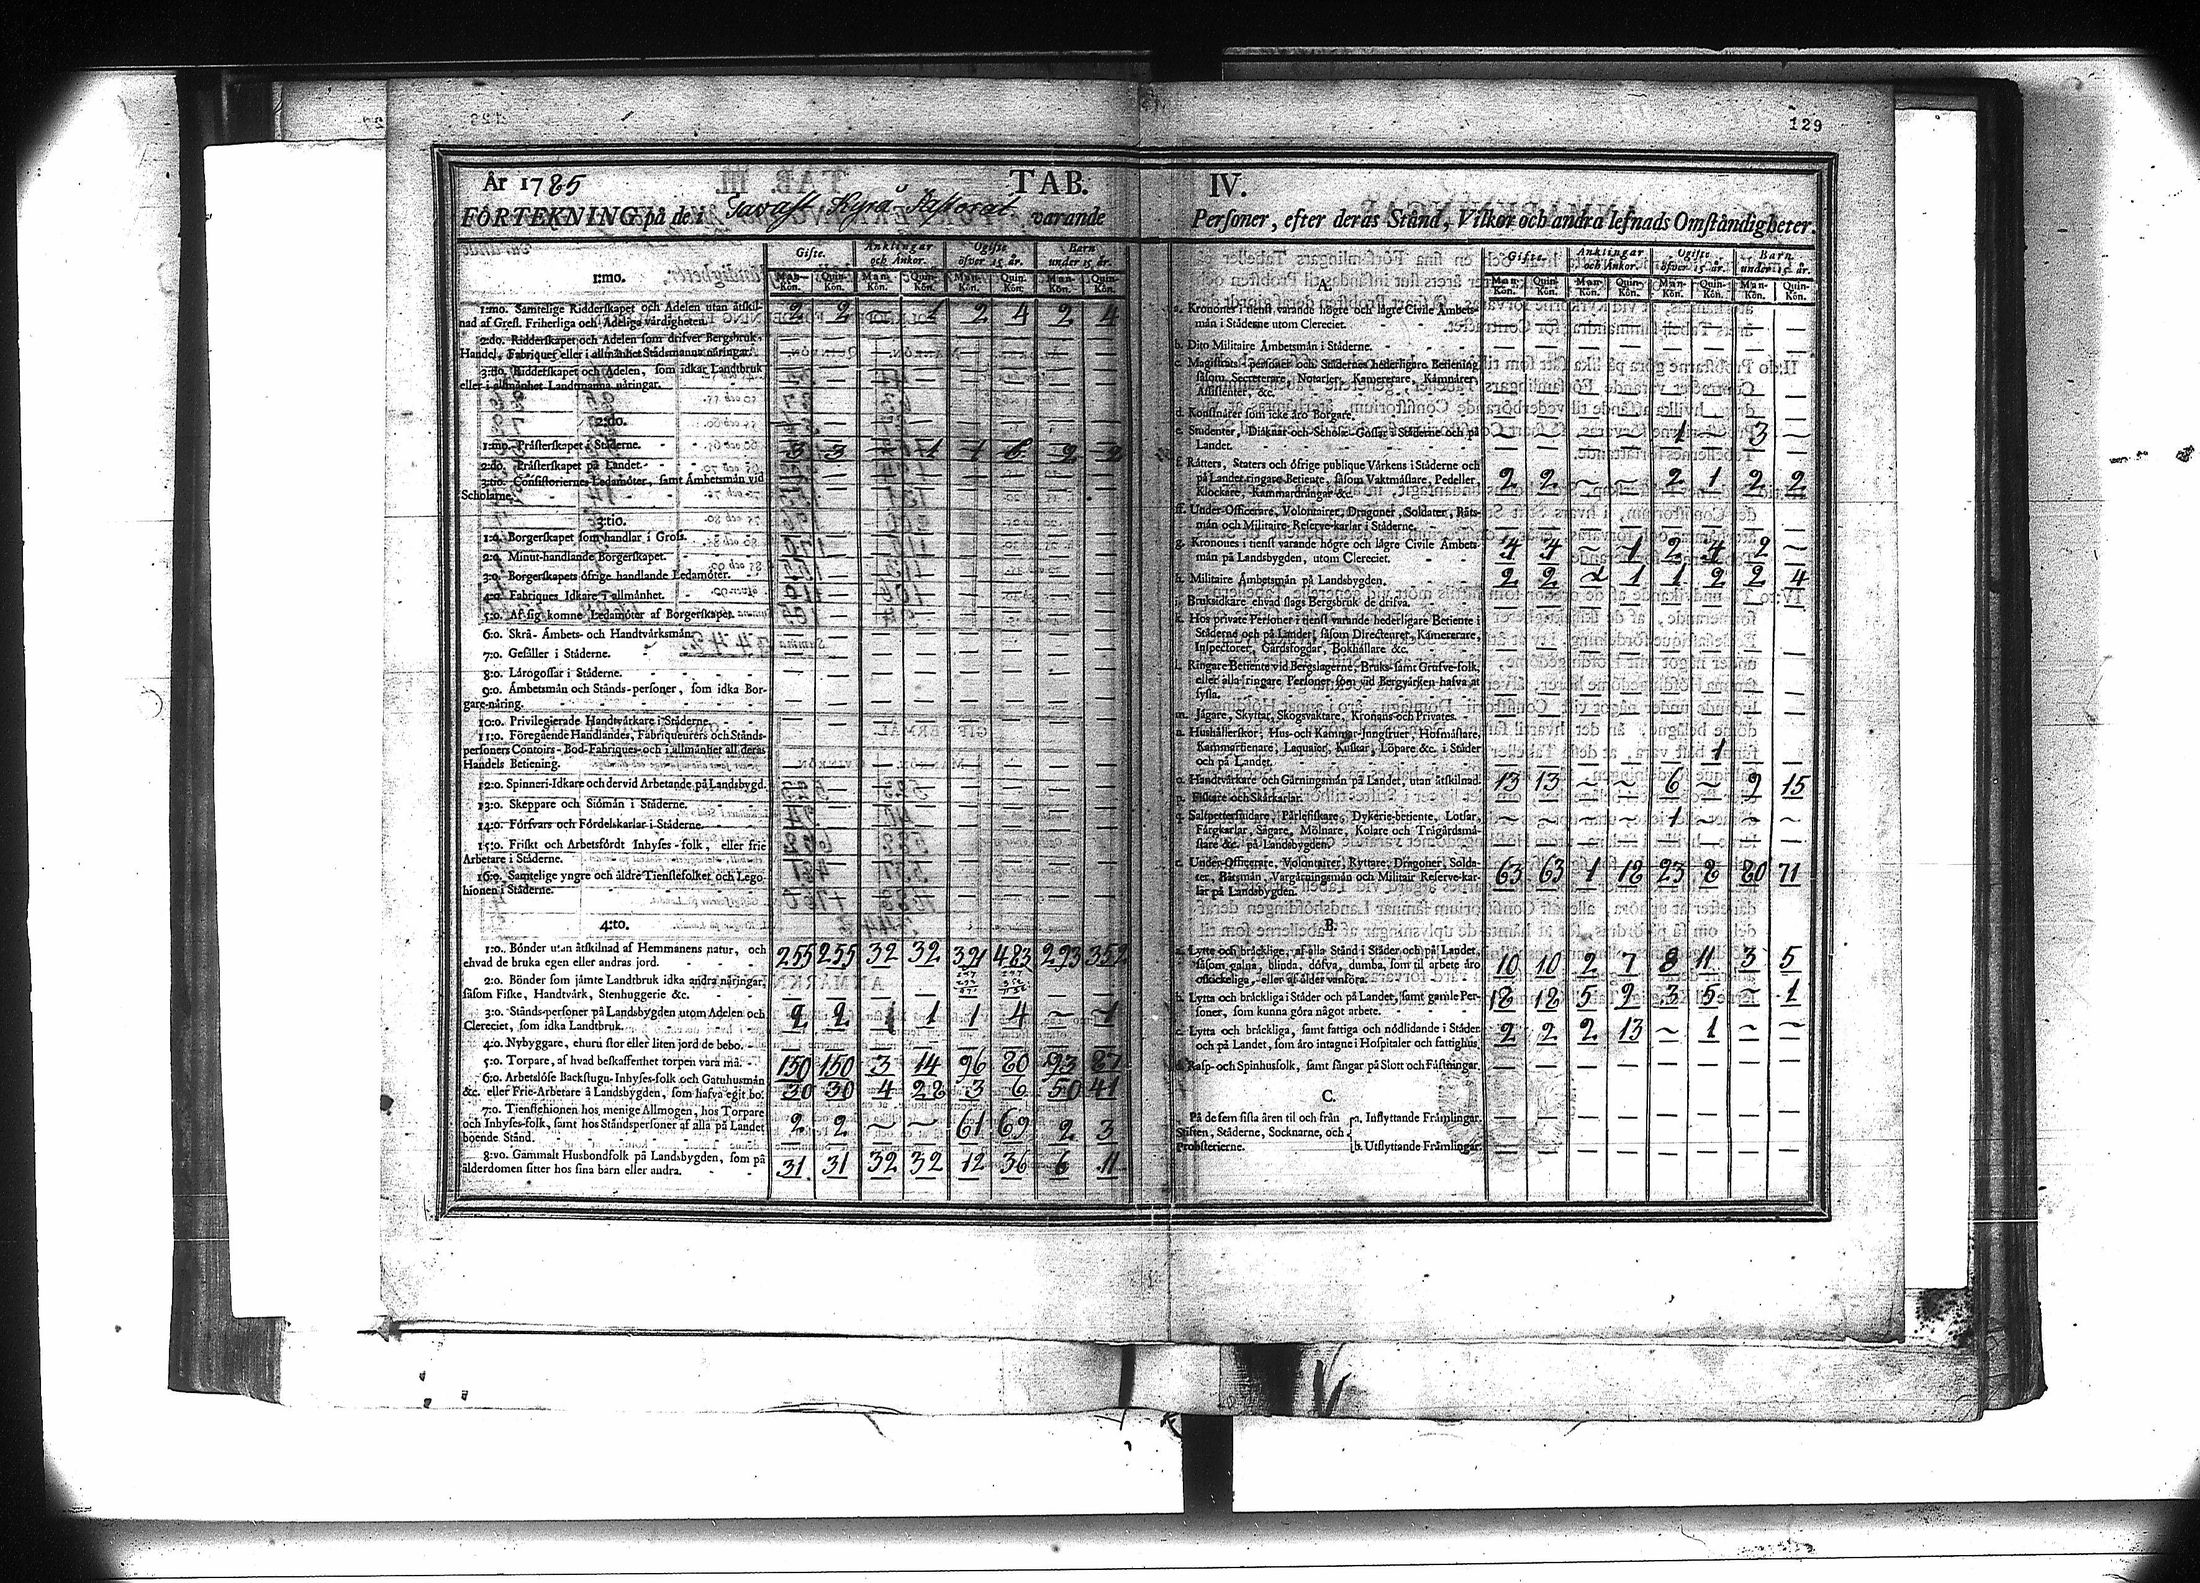 129
År 1785 TAB. IV.
FÖRTEKNING på de i Tavast Kyrö Pastorat varande Personer, efter deras Stånd, Vilkor och andra lefnads Omständigheter.
Gifte. Änklingar och Änkor. Ogifte öfver 15 år. Barn under 15 år.
1:mo. Man-Kön. Quin-Kön. Man-Kön. Quin-Kön. Man-Kön. Quin-Kön. Man-Kön. Quin-Kön.
1:mo. Samtelige Ridderskapet och Adelen utan åtskil-
nad af Grefl. Friherliga och Adeliga värdigheter. 2 2 — 1 2 4 2 4
2:do. Ridderskapet och Adelen som drifver Bergsbruk,
Handel, Fabriquer eller i allmänhet Stadsmanna näringar. — — — — — — — —
3:tio. Ridderskapet och Adelen, som idkar Landtbruk
eller i allmänhet Landtmanna näringar. — — — — — — — —
2:do.
1:mo. Prästerskapet i Städerne.
2:do. Prästerskapet på Landet.
3:tio. Consistoriernes Ledamöter, samt Ämbetsmän vid
Scholarne.
3:tio.
1:o. Borgerskapet som handlar i Gross. — — — — — — — —
2:o. Minut-handlande Borgerskapet. — — — — — — — —
3:o. Borgerskapets öfrige handlande Ledamöter. — — — — — — — —
4:o. Fabriques Idkare i allmänhet. — — — — — — — —
5:o. Af sig komne Ledamöter af Borgerskapet. — — — — — — — —
6:o. Skrå- Ämbets- och Handtvärksmän. — — — — — — — —
7:o. Gesäller i Städerne. — — — — — — — —
8:o. Lärogossar i Städerne. — — — — — — — —
9:o. Ämbetsmän och Stånds-personer, som idka Bor-
gare-näring. — — — — — — — —
10:o. Privilegierade Handtvärkare i Städerne. — — — — — — — —
11:o. Föregående Handlandes, Fabriqueurers och Stånds-
personers Contoirs- Bod-Fabriques- och i allmänhet all deras
Handels Betiening. — — — — — — — —
12:o. Spinneri-Idkare och dervid Arbetande på Landsbygd. — — — — — — — —
13:o. Skeppare och Siömän i Städerne. — — — — — — — —
14:o. Försvars och Fördelskarlar i Städerne. — — — — — — — —
15:o. Friskt och Arbetsfördt Inhyses-folk, eller frie
Arbetare i Städerne. — — — — — — — —
16:o. Samtelige yngre och äldre Tienstefolket och Lego-
hionen i Städerne. — — — — — — — —
4:to.
1:o. Bönder utan åtskilnad af Hemmanens natur, och
ehvad de bruka egen eller andras jord. 255 255 32 32 321 483 293 352
2:o. Bönder som jämte Landtbruk idka andra näringar,
såsom Fiske, Handtvärk, Stenhuggerie &c.
3:o. Stånds-personer på Landsbygden utom Adelen och
Clereciet, som idka Landtbruk. 2 2 1 1 1 4 ~ 1
4:o. Nybyggare, ehuru stor eller liten jord de bebo. — — — — — — — —
5:o. Torpare, af hvad beskaffenhet torpen vara må. 150 150 3 14 96 80 93 87
6:o. Arbetslöse Backstugu-Inhyses-folk och Gatuhusmän
&c. eller Frie-Arbetare å Landsbygden, som hafva egit bo. 30 30 4 28 3 6 50 41
7:o. Tienstehionen hos menige Allmogen, hos Torpare
och Inhyses-folk, samt hos Ståndspersoner af alla på Landet
boende Stånd. 2 2 ~ ~ 61 69 2 3
8:vo. Gammalt Husbondfolk på Landsbygden, som på
ålderdomen sitter hos sina barn eller andra. 31 31 32 32 12 36 6 11
Gifte. Änklingar och Änkor. Ogifte öfver 15 år. Barn under 15 år.
A. Man-Kön. Quin-Kön. Man-Kön. Quin-Kön. Man-Kön. Quin-Kön. Man-Kön. Quin-Kön.
a. Kronones i tienst varande högre och lägre Civile Ämbets-
män i Städerne utom Clereciet. — — — — — — — —
b. Dito Militaire Ämbetsmän i Städerne. — — — — — — — —
c. Magistrats-personer och Städernes hederligare Betiening
såsom Secreterare, Notarier, Kamererare, Kämnärer,
Assistenter, &c. — — — — — — — —
d. Konstnärer som icke äro Borgare. — — — — — — — —
e. Studenter, Diäknar och Schole-Gossar i Städerne och på
Landet. — — — — 1 — 3 —
f. Rätters, Staters och öfrige publique Värkens i Städerne och
på Landet ringare Betiente, såsom Vaktmästare, Pedeller,
Klockare, Kammardrängar &c. 2 2 ~ ~ 2 1 2 2
ff. Under-Officerare, Volontairer, Dragoner, Soldater, Båts-
män och Militaire Reserve-karlar i Städerne. — — — — — — — —
g. Kronones i tienst varande högre och lägre Civile Ämbets-
män på Landsbygden, utom Clereciet. 4 4 ~ 1 2 4 2 ~
h. Militaire Ämbetsmän på Landsbygden. 2 2 ~ 1 1 2 2 4
i. Bruksidkare ehvad slags Bergsbruk de drifva. — — — — — — — —
k. Hos private Personer i tienst varande hederligare Betiente i
Städerne och på Landet, såsom Directeurer, Kamererare,
Inspectorer, Gårdsfogdar, Bokhållare &c. — — — — — — — —
l. Ringare Betiente vid Bergslagerne, Bruks- samt Grufve-folk,
eller alla ringare Personer som vid Bergvärken hafva at
sysla. — — — — — — — —
m. Jägare, Skyttar, Skogsvaktare, Kronans och Privates. — — — — — — — —
n. Hushållerskor, Hus- och Kammar-Jungfruer, Hofmästare,
Kammartienare, Laquaier, Kuskar, Löpare &c. i Städer
och på Landet. — — — — — 1 — —
o. Handtvärkare och Gärningsmän på Landet, utan åtskilnad. 13 13 ~ ~ 6 ~ 9 15
p. Fiskare och Skärkarlar.
q. Saltpettersiudare, Pärlefiskare, Dykerie-betiente, Lotsar,
Färgkarlar, Sågare, Mölnare, Kolare och Trägårdsmä-
stare &c. på Landsbygden.
r. Under-Officerare, Volontairer, Ryttare, Dragoner, Solda-
ter, Båtsmän, Vargäringsmän och Militair Reserve-kar-
lar på Landsbygden. 63 63 1 18 23 8 80 71
B.
a. Lytte och bräcklige, af alla Stånd i Städer och på Landet,
såsom galna, blinda, döfva, dumba, som til arbete äro
oskickeliga, eller af ålder vanföra. 10 10 2 7 8 11 3 5
b. Lytta och bräckliga i Städer och på Landet, samt gamle Per-
soner, som kunna göra något arbete. 18 18 5 9 3 5 — 1
c. Lytta och bräckliga, samt fattiga och nödlidande i Städer
och på Landet, som äro intagne i Hospitaler och fattighus. 2 2 2 13 ~ 1 ~ ~
d. Rasp- och Spinhusfolk, samt fångar på Slott och Fästningar. — — — — — — — —
C.
På de fem sista åren til och från a. Inflyttande Främlingar. — — — — — — — —
Stiften, Städerne, Socknarne, och
Probsterierne. b. Utflyttande Främlingar. — — — — — — — —